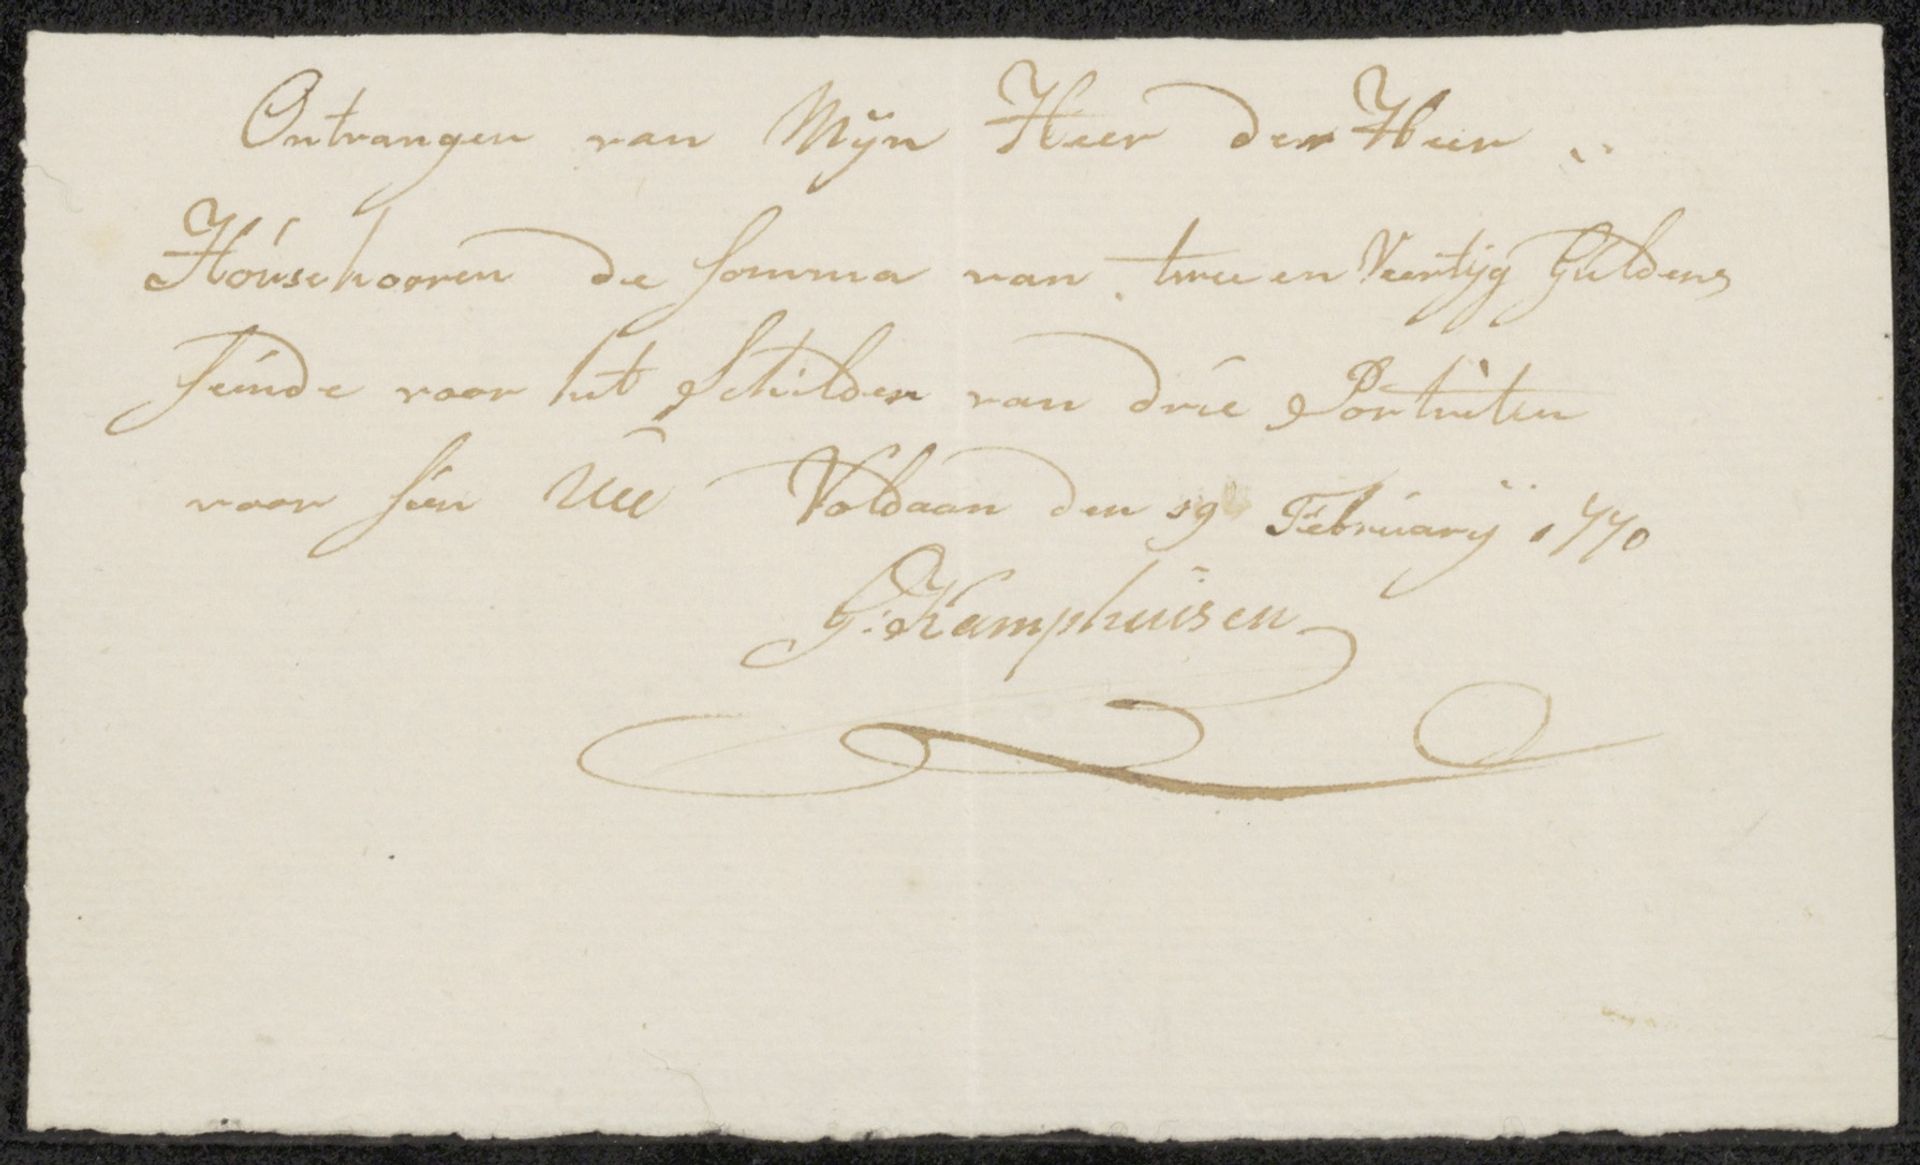 Ontvangen van Mijn Heer den Heer
Hóúschooren de somma van twee en Veertijg Gúldens
seinde voor het Schilden van drie Portriten
voor sien UE Voldaan den 19 Febrúarij 1770
G: Kamphuisen